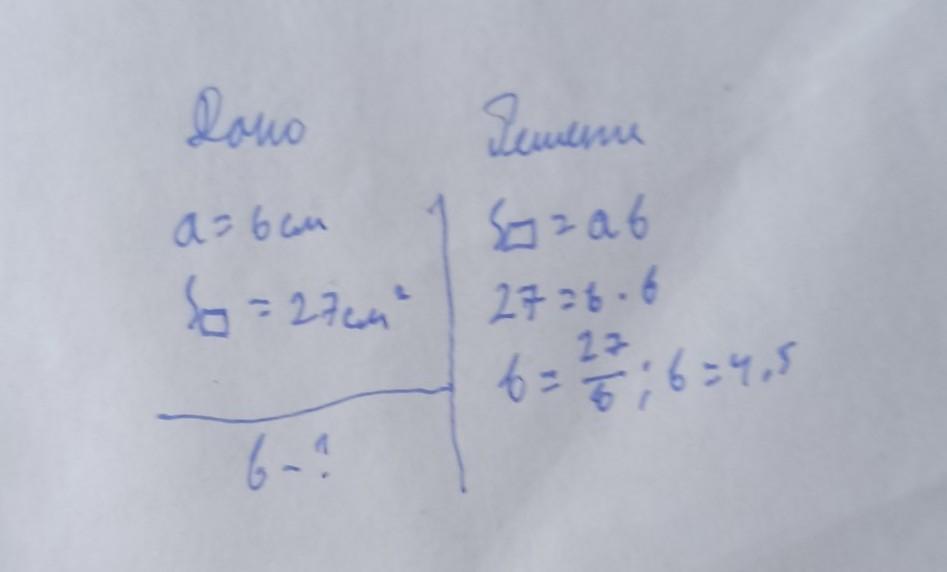 Дано
a = 6 см
S□ = 27 см²
в - ?
Решение
S□ = a в
27 = 6 · в
в = 27/6 ; в = 4,5